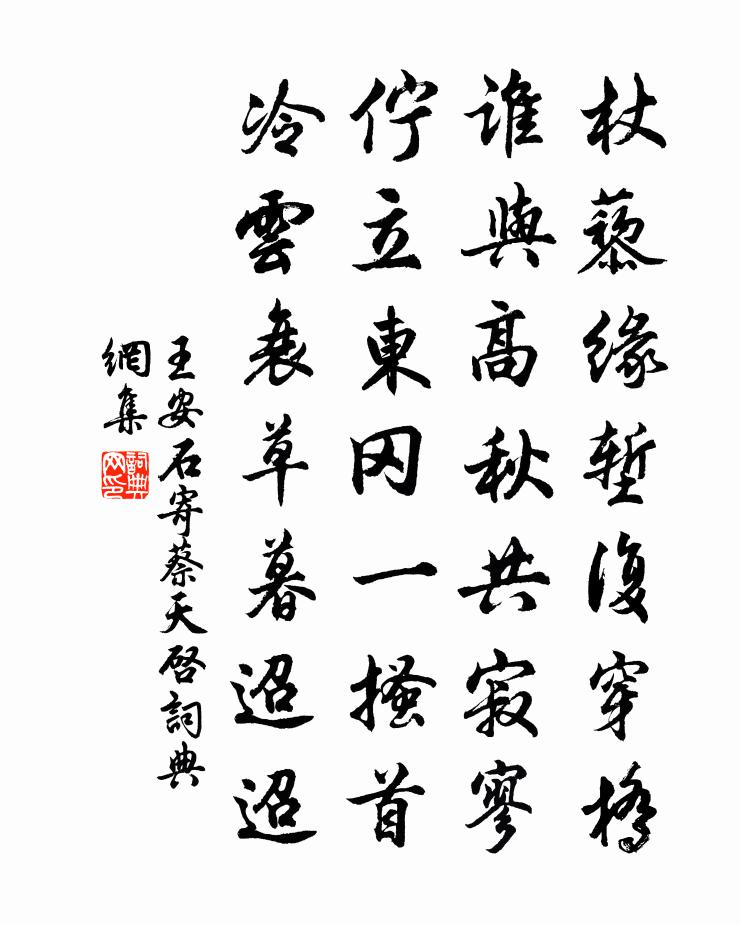 杖藜緣塹復穿橋
誰與高秋共寂寥
佇立東冈一搔首
冷雲衰草暮迢迢
王安石寄蔡天啓詞典
網集
詞典
网印